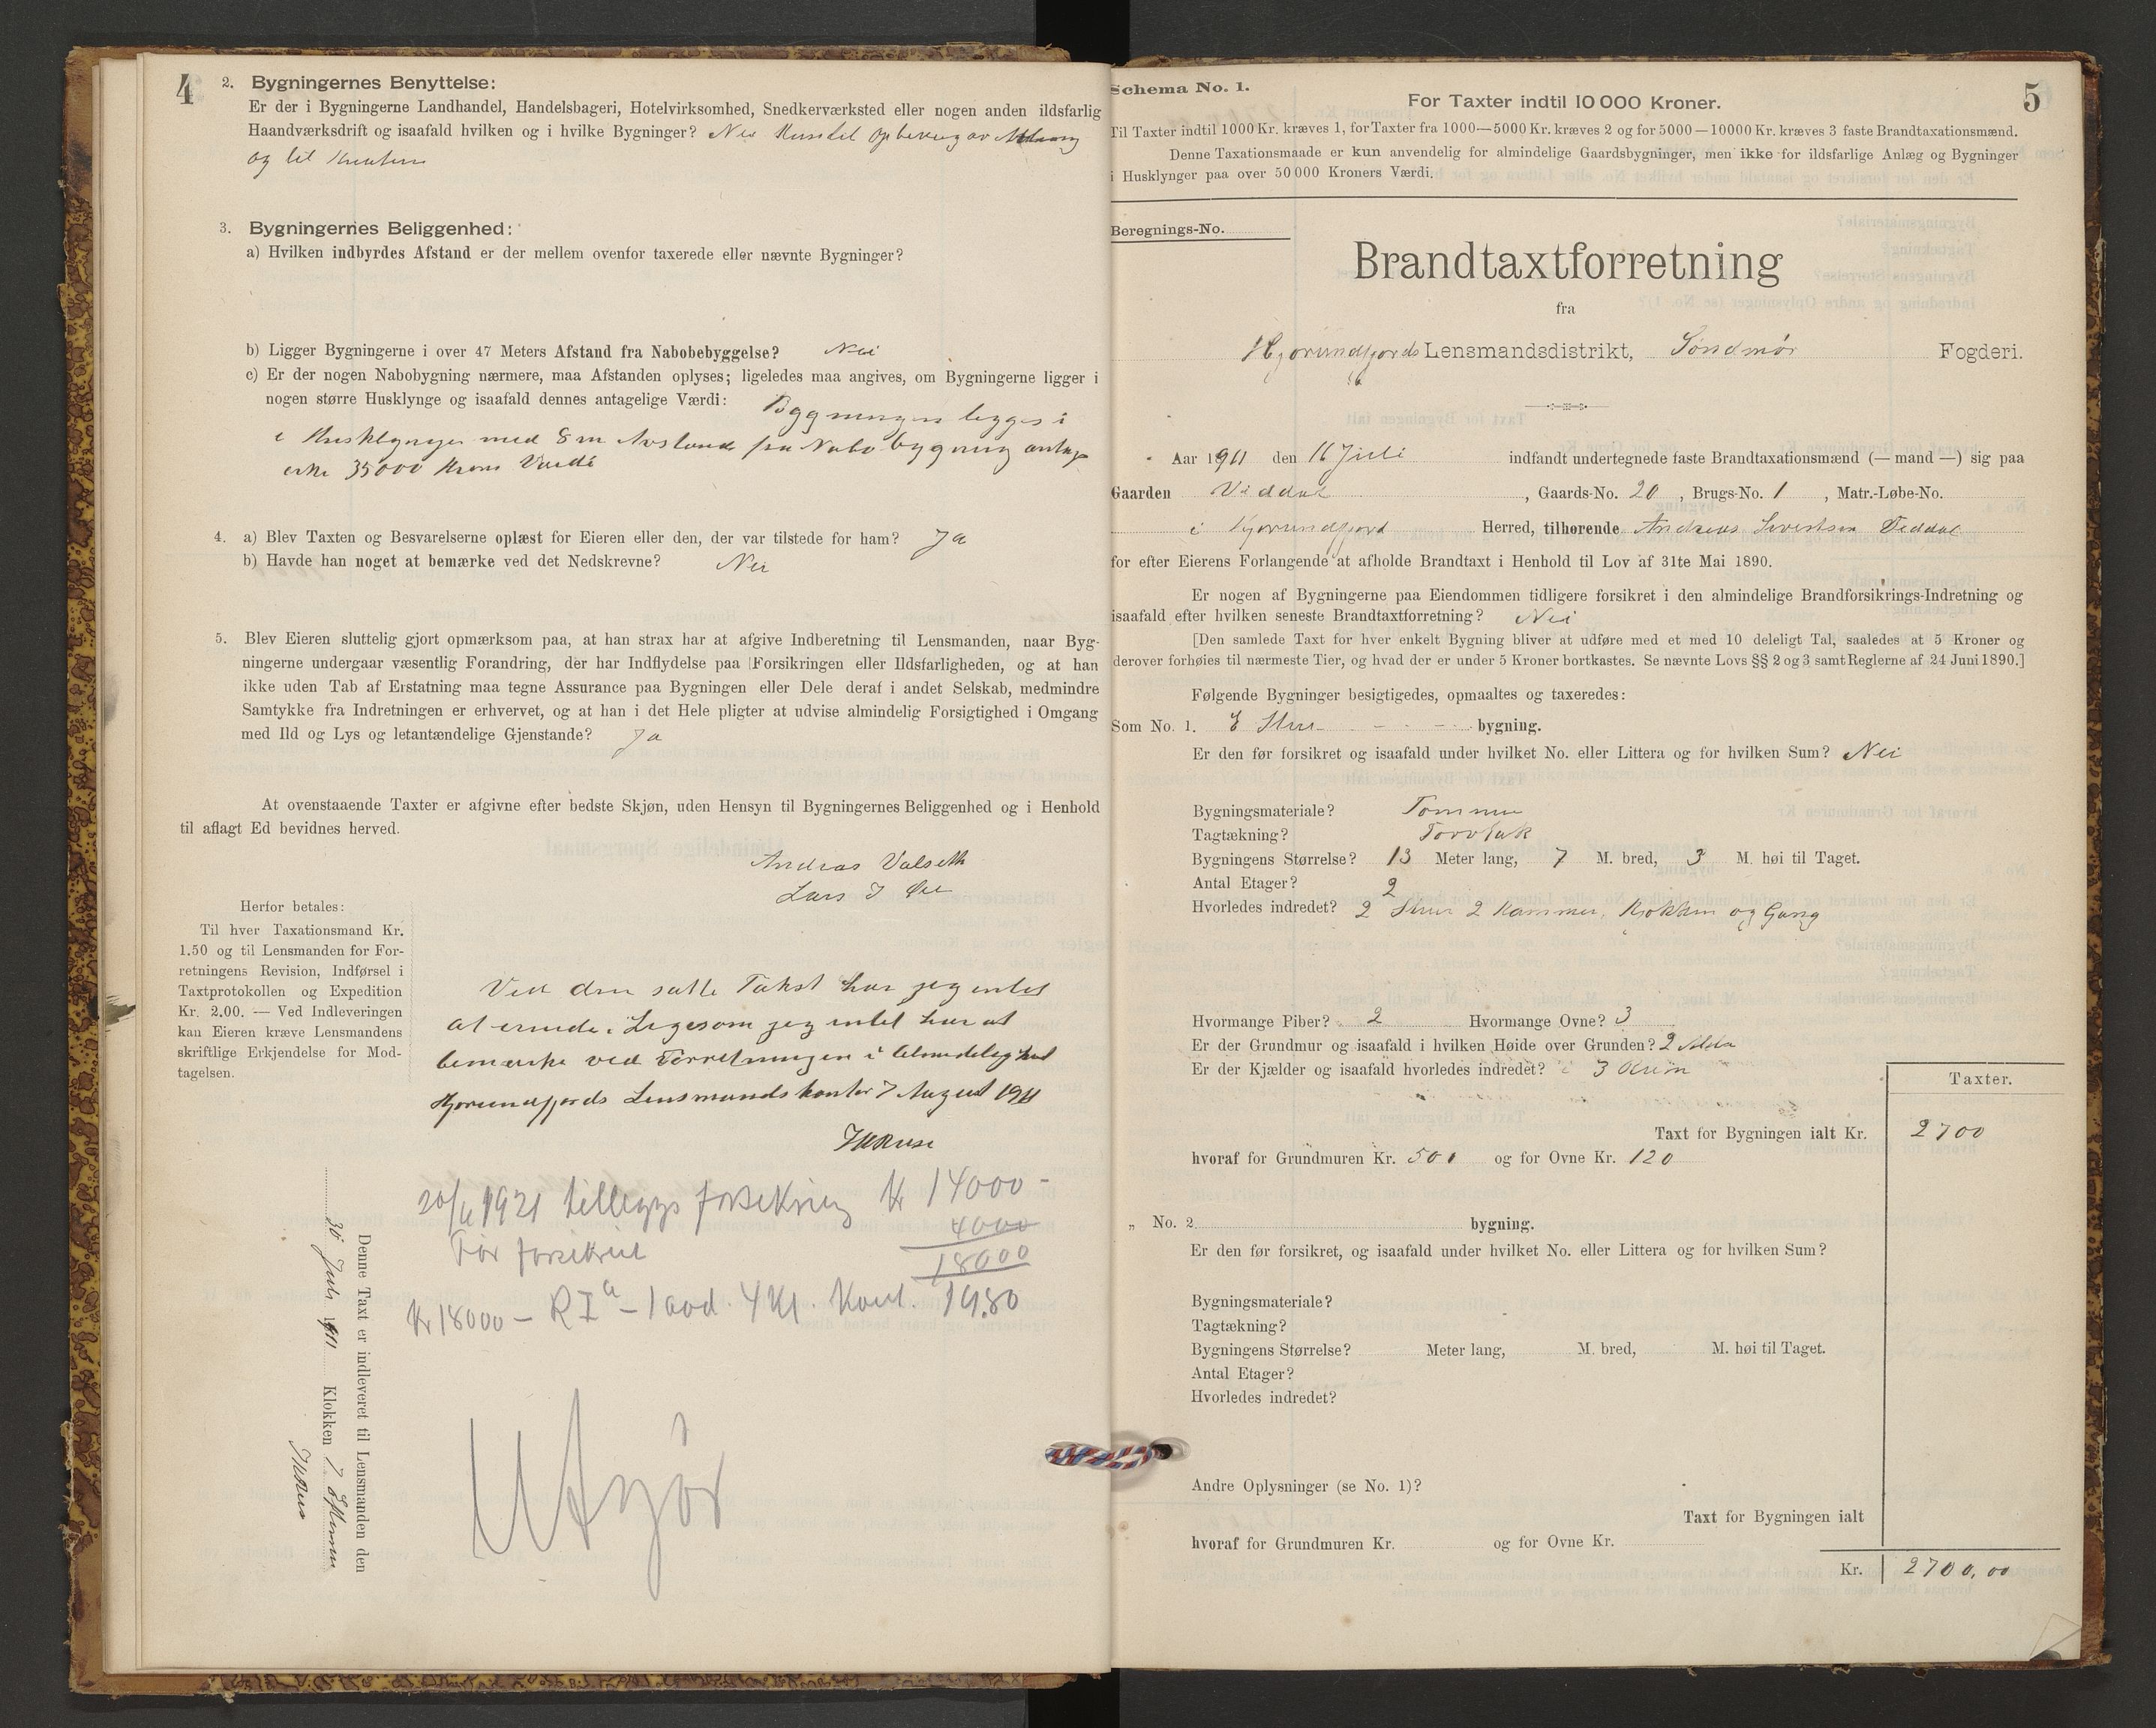 4
2. Bygningernes Benyttelse:
Er der i Bygningerne Landhandel, Handelsbageri, Hotelvirksomhed, Snedkerværksted eller nogen anden ildsfarlig
Haandværksdrift og isaafald hvilken og i hvilke Bygninger? Nei
og til
3. Bygningernes Beliggenhed:
a) Hvilken indbyrdes Afstand er der mellem ovenfor taxerede eller nævnte Bygninger?
b) Ligger Bygningerne i over 47 Meters Afstand fra Nabobebyggelse? Nei
c) Er der nogen Nabobygning nærmere, maa Afstanden oplyses; ligeledes maa angives, om Bygningerne ligger i
nogen større Husklynge og isaafald dennes antagelige Værdi: Bygningen ligger i
i Husklynge med 8 m Avstand fra Nabobygning
35000 Kroner Værdi
4. a) Blev Taxten og Besvarelserne oplæst for Eieren eller den, der var tilstede for ham? Ja
b) Havde han noget at bemærke ved det Nedskrevne? Nei
5. Blev Eieren sluttelig gjort opmærksom paa, at han strax har at afgive Indberetning til Lensmanden, naar Byg-
ningerne undergaar væsentlig Forandring, der har Indflydelse paa Forsikringen eller Ildsfarligheden, og at han
ikke uden Tab af Erstatning maa tegne Assurance paa Bygningen eller Dele deraf i andet Selskab, medmindre
Samtykke fra Indretningen er erhvervet, og at han i det Hele pligter at udvise almindelig Forsigtighed i Omgang
med Ild og Lys og letantændelige Gjenstande? Ja
At ovenstaaende Taxter er afgivne efter bedste Skjøn, uden Hensyn til Bygningernes Beliggenhed og i Henhold
til aflagt Ed bevidnes herved.
Andreas Valseth
Lars J
Herfor betales:
Til hver Taxationsmand Kr.
1.50 og til Lensmanden for For-
retningens Revision, Indførsel i
Taxtprotokollen og Expedition
Kr. 2.00. — Ved Indleveringen
kan Eieren kræve Lensmandens
skriftlige Erkjendelse for Mod-
tagelsen.
Ved den satte Takst har jeg intet
at erindre. Ligesom jeg intet har at
bemærke ved Forretningen i
Hjørundfjords Lensmandskontor 7 August 1911
1921 tilleggs forsikring kr 14000-
Før forsikret 4000
18000
Kr 18000 - R I a - 1 avd. 4 Kl. Kont. 19.80
Denne Taxt er indleveret til Lensmanden den
30 Juli 1911 Klokken 7 Eftermn
Utgjør
Schema No. 1.
For Taxter indtil 10 000 Kroner.
5
Til Taxter indtil 1000 Kr. kræves 1, for Taxter fra 1000—5000 Kr. kræves 2 og for 5000—10000 Kr. kræves 3 faste Brandtaxationsmænd.
Denne Taxationsmaade er kun anvendelig for almindelige Gaardsbygninger, men ikke for ildsfarlige Anlæg og Bygninger
i Husklynger paa over 50 000 Kroners Værdi.
Beregnings-No.
Brandtaxtforretning
fra
Hjørundfjords Lensmandsdistrikt, Søndmør Fogderi.
Aar 1911 den 11 Juli indfandt undertegnede faste Brandtaxationsmænd (— mand —) sig paa
Gaarden Viddal, Gaards-No. 20, Brugs-No. 1, Matr.-Løbe-No.
i Hjørundfjord Herred, tilhørende Andreas Sivertsen Viddal
for efter Eierens Forlangende at afholde Brandtaxt i Henhold til Lov af 31te Mai 1890.
Er nogen af Bygningerne paa Eiendommen tidligere forsikret i den almindelige Brandforsikrings-Indretning og
isaafald efter hvilken seneste Brandtaxtforretning? Nei
[Den samlede Taxt for hver enkelt Bygning bliver at udføre med et med 10 deleligt Tal, saaledes at 5 Kroner og
derover forhøies til nærmeste Tier, og hvad der er under 5 Kroner bortkastes. Se nævnte Lovs §§ 2 og 3 samt Reglerne af 24 Juni 1890.]
Følgende Bygninger besigtigedes, opmaaltes og taxeredes:
Som No. 1. E Stue bygning.
Er den før forsikret og isaafald under hvilket No. eller Littera og for hvilken Sum? Nei
Bygningsmateriale? Tømmer
Tagtækning? Torvtak
Bygningens Størrelse? 13 Meter lang, 7 M. bred, 3 M. høi til Taget.
Antal Etager? 2
Hvorledes indredet? 2 Stuer 2 Kammer, Kjøkken og Gang
Hvormange Piber? 2 Hvormange Ovne? 3
Er der Grundmur og isaafald i hvilken Høide over Grunden? 2
Er der Kjælder og isaafald hvorledes indredet? i 3 Rum
Taxter.
Taxt for Bygningen ialt Kr. 2700
hvoraf for Grundmuren Kr. 500 og for Ovne Kr. 120
„ No. 2 bygning.
Er den før forsikret, og isaafald under hvilket No. eller Littera og for hvilken Sum?
Bygningsmateriale?
Tagtækning?
Bygningens Størrelse? Meter lang, M. bred, M. høi til Taget.
Antal Etager?
Hvorledes indredet?
Andre Oplysninger (se No. 1)?
Taxt for Bygningen ialt
hvoraf for Grundmuren Kr. og for Ovne Kr.
Kr. 2700,00